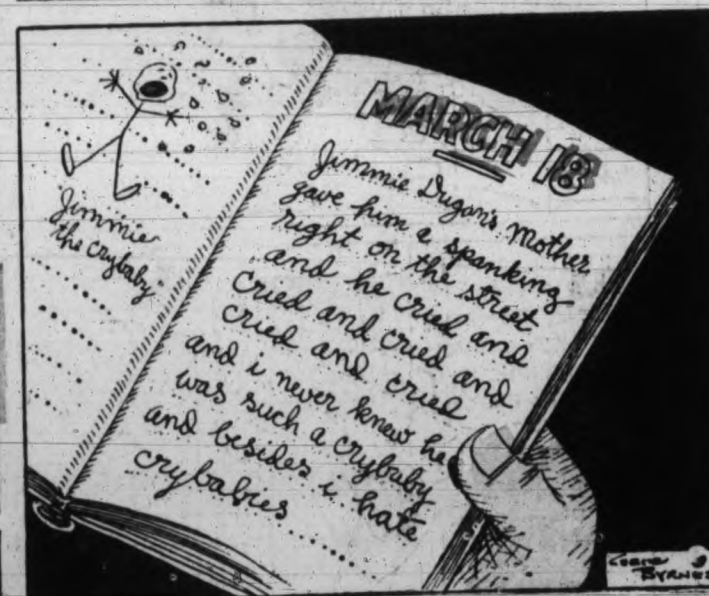 Jimmie
the crybaby
MARCH 18
Jimmie Dugan's Mother
gave him a spanking
right on the street
and he cried and
cried and cried and
cried and cried
and i never knew he
was such a crybaby
and besides i hate
crybabies
GENE
BYRNES